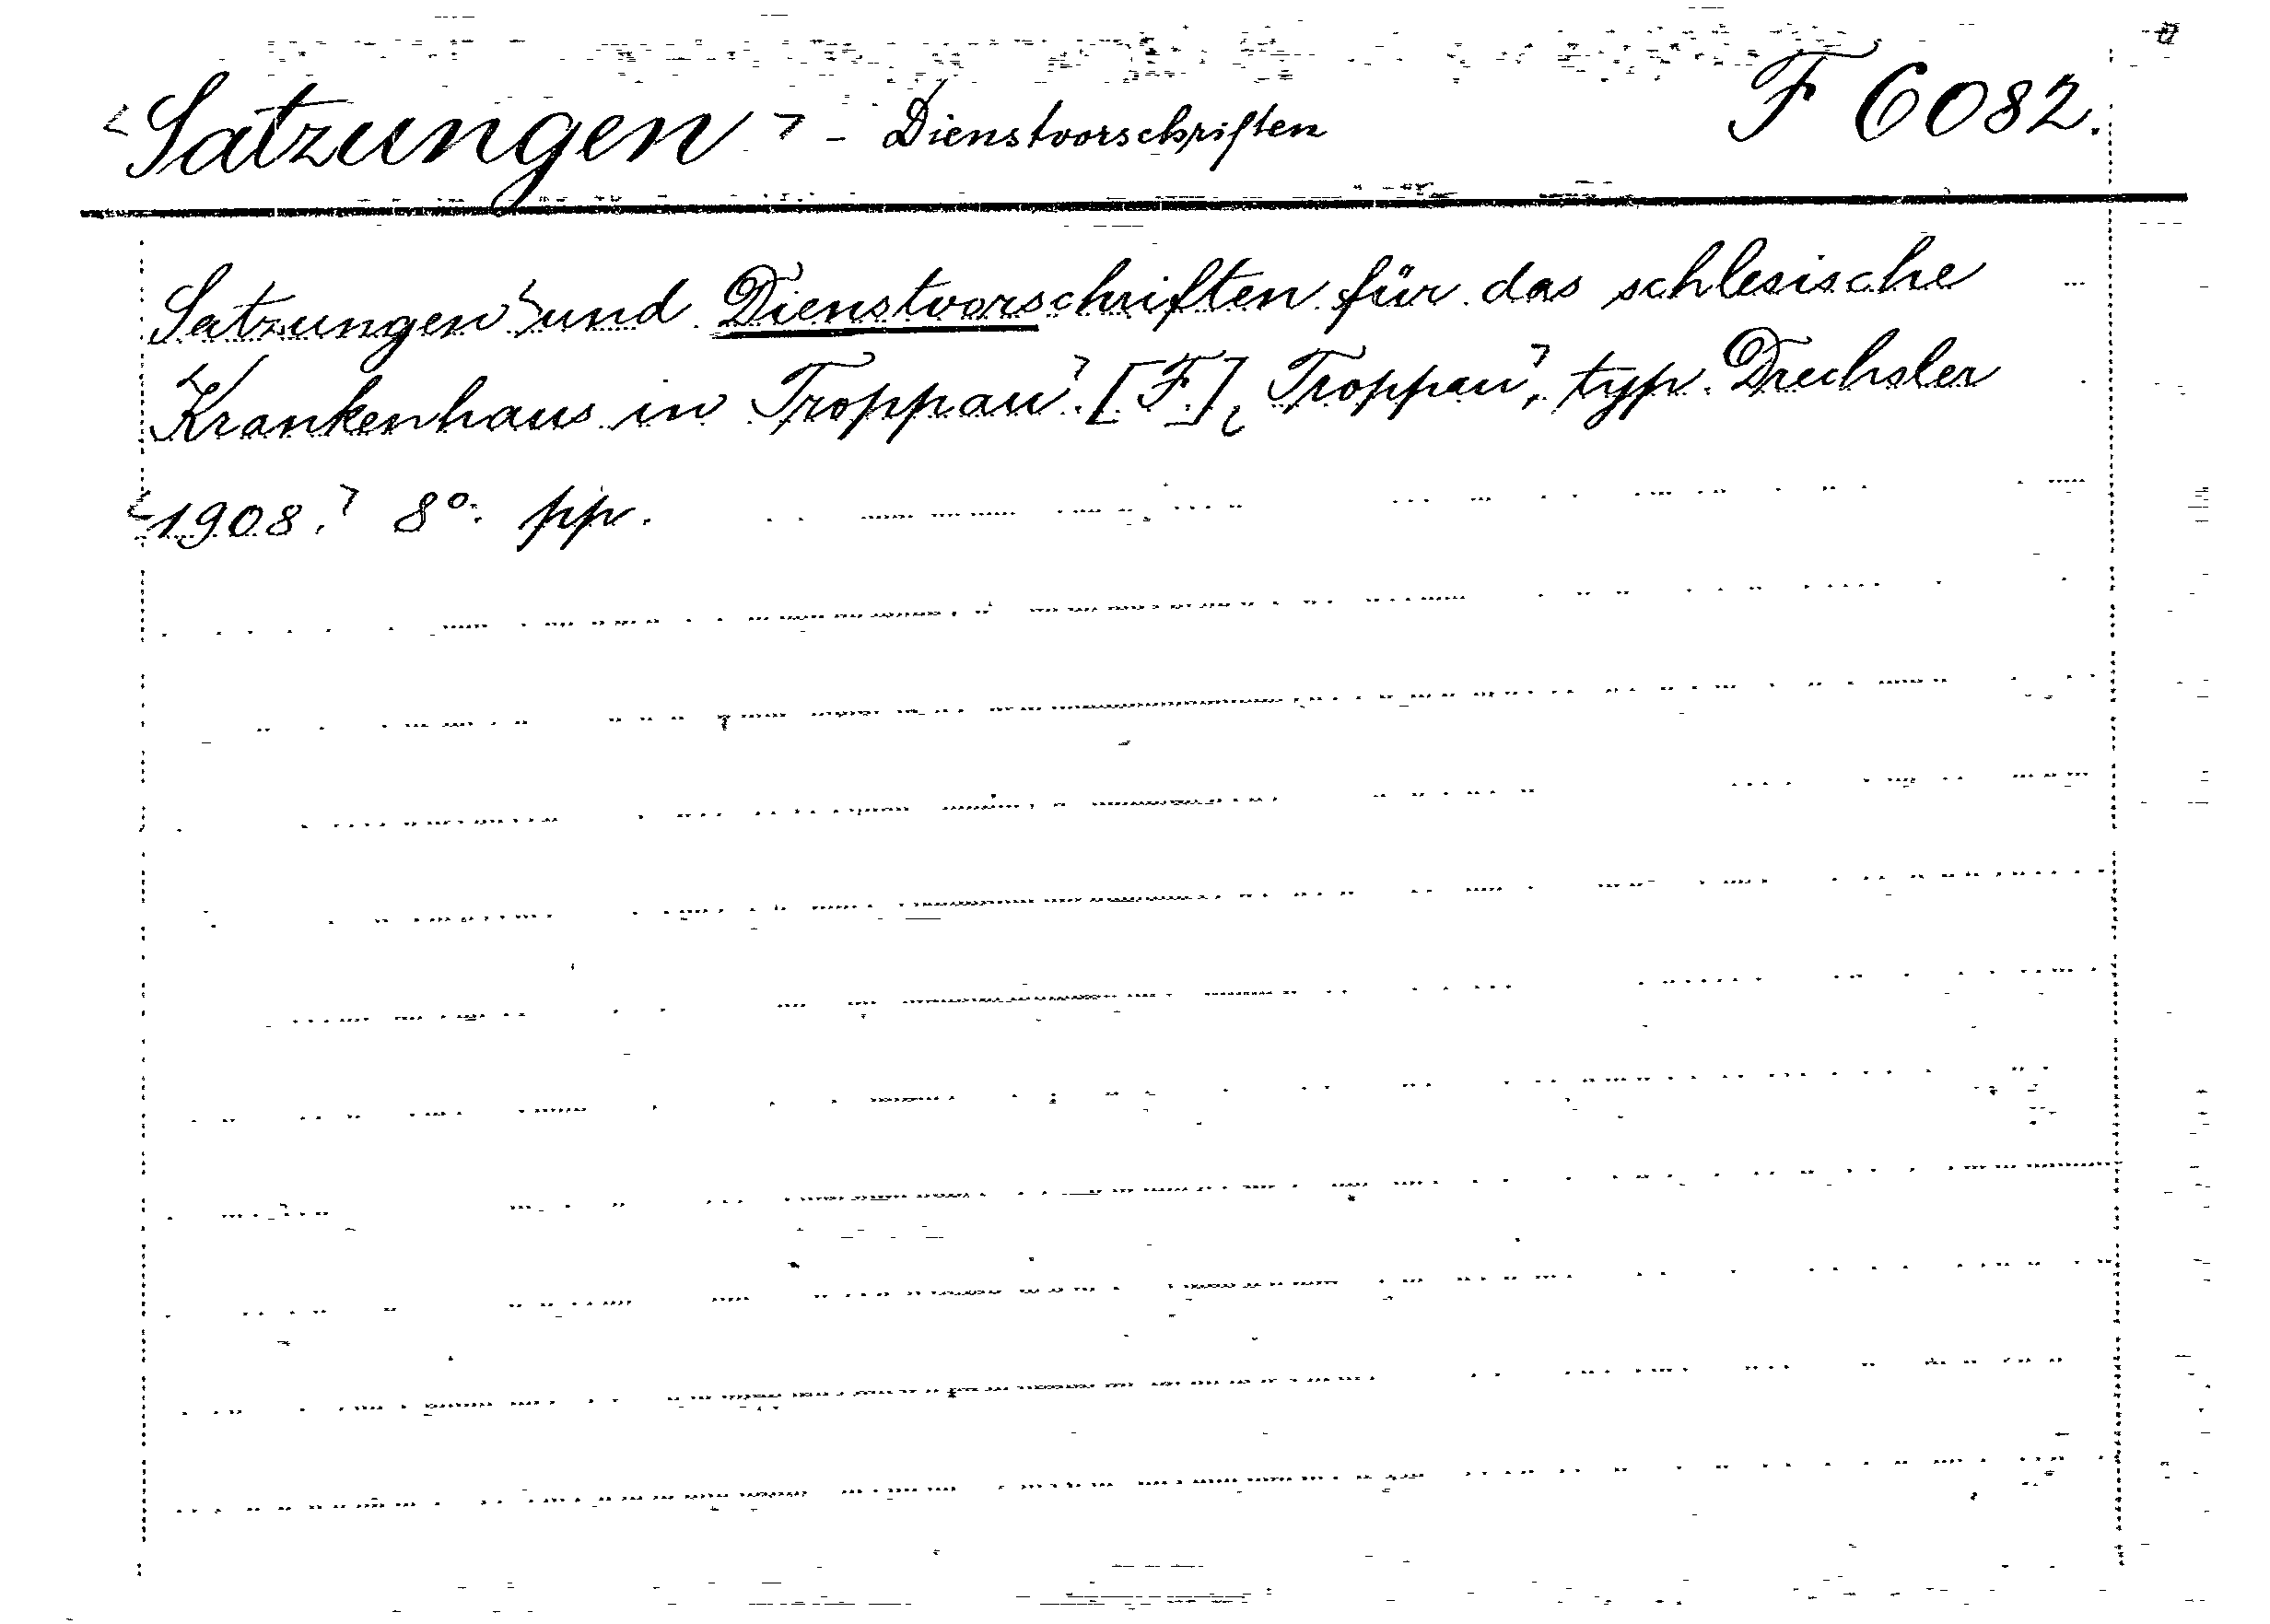 Satzungen - Dienstvorschriften F 6082.
Satzungen und Dienstvorschriften für das schlesische
Krankenhaus in Troppau. [F.], Troppau, typ. Drechsler
1908. 8°. pp.